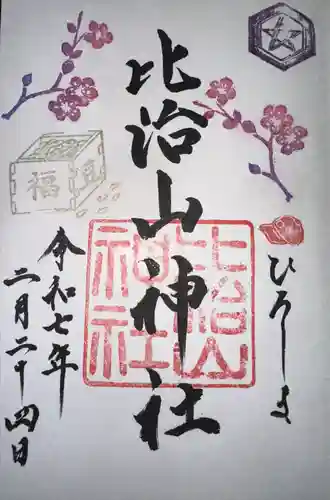 ひろしま
比治山神社
比治山
神社
福
令和七年
二月二十四日